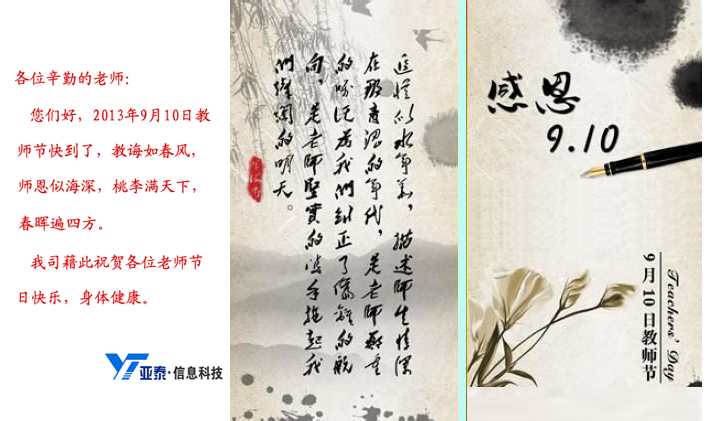 各位辛勤的老师：
您们好，2013年9月10日教
师节快到了，教诲如春风，
师恩似海深，桃李满天下，
春晖遍四方。
我司藉此祝贺各位老师节
日快乐，身体健康。
YT 亚泰·信息科技
追憶似水年華，描述师生情深
在那青澀的年代，是老师
的為我們糾正了偏離的航
向，是老师堅實的雙手拖起我
們燦爛的明天。
感恩
9.10
Teachers' Day
9月10日教师节